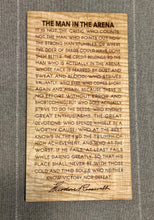 THE MAN IN THE ARENA
IT IS NOT THE CRITIC WHO COUNTS,
NOT THE MAN WHO POINTS OUT HOW
THE STRONG MAN STUMBLES OR WHERE
THE DOER OF DEEDS COULD HAVE DONE
THEM BETTER. THE CREDIT BELONGS TO THE
MAN WHO IS ACTUALLY IN THE ARENA,
WHOSE FACE IS MARRED BY DUST AND
SWEAT AND BLOOD; WHO STRIVES
VALIANTLY; WHO ERRS, WHO COMES SHORT
AGAIN AND AGAIN, BECAUSE THERE
IS NO EFFORT WITHOUT ERROR AND
SHORTCOMING; BUT WHO DOES ACTUALLY
STRIVE TO DO THE DEEDS; WHO KNOWS
GREAT ENTHUSIASMS, THE GREAT
DEVOTIONS; WHO SPENDS HIMSELF IN A
WORTHY CAUSE; WHO AT THE BEST
KNOWS IN THE END THE TRIUMPH OF
HIGH ACHIEVEMENT, AND WHO AT THE
WORST, IF HE FAILS, AT LEAST FAILS
WHILE DARING GREATLY, SO THAT HIS
PLACE SHALL NEVER BE WITH THOSE
COLD AND TIMID SOULS WHO NEITHER
KNOW VICTORY NOR DEFEAT.
Theodore Roosevelt